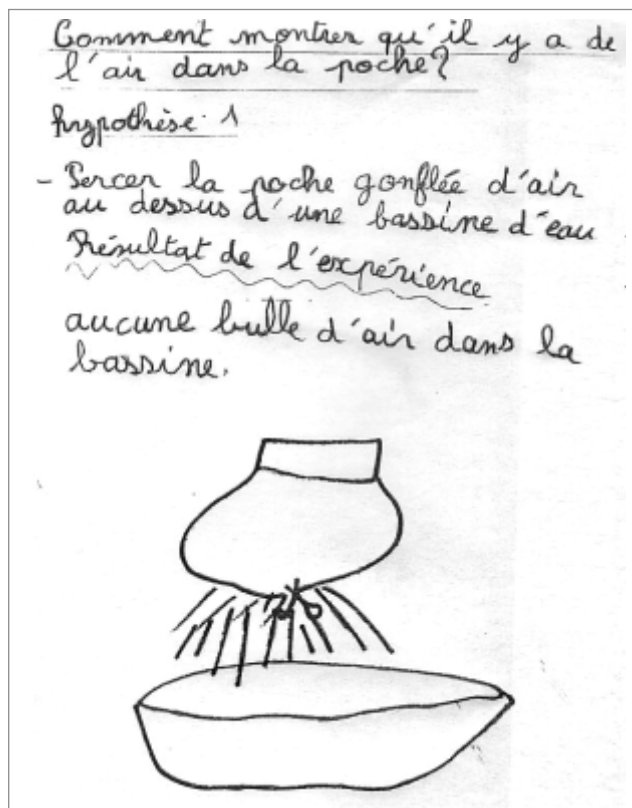 Comment montrer qu'il y a de
l'air dans la poche?
hypothèse 1
- Percer la poche gonflée d'air
au dessus d'une bassine d'eau.
Résultat de l'expérience
aucune bulle d'air dans la
bassine.